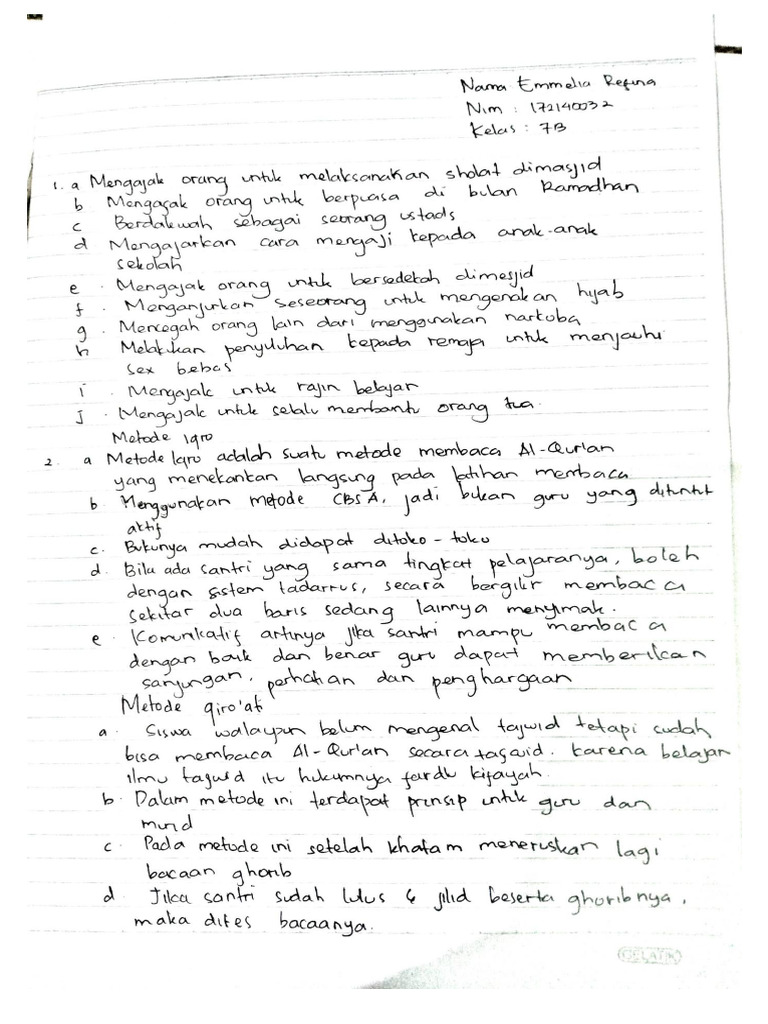 Nama Emmelia Refina
Nim : 172140032
Kelas : 7B
1. a Mengajak orang untuk melaksanakan sholat dimasjid
b Mengajak orang untuk berpuasa di bulan Ramadhan
c Berdakwah sebagai seorang ustads
d Mengajarkan cara mengaji kepada anak-anak
sekolah
e . Mengajak orang untuk bersedekah dimesjid
f . Menganjurkan seseorang untuk mengenakan hijab
g . Mencegah orang lain dari menggunakan narkoba
h Melakukan penyuluhan kepada remaja untuk menjauhi
sex bebas
i . Mengajak untuk rajin belajar
j . Mengajak untuk selalu membantu orang tua.
Metode Iqro
2. a Metode Iqro adalah suatu metode membaca Al-Qur'an
yang menekankan langsung pada latihan membaca
b. Menggunakan metode CBSA, jadi bukan guru yang dituntut
aktif
c. Bukunya mudah didapat ditoko-toko
d. Bila ada santri yang sama tingkat pelajaranya, boleh
dengan sistem tadarrus, secara bergilir membaca
sekitar dua baris sedang lainnya menyimak.
e . Komunikatif artinya jika santri mampu membaca
dengan baik dan benar guru dapat memberikan
sanjungan, perhatian dan penghargaan
Metode qiro'ati
a . Siswa walaupun belum mengenal tajwid tetapi sudah
bisa membaca Al-Qur'an secara tajwid. karena belajar
ilmu tajwid itu hukumnya fardu kifayah.
b . Dalam metode ini terdapat prinsip untuk guru dan
murid
c . Pada metode ini setelah khatam meneruskan lagi
bacaan ghorib
d . Jika santri sudah lulus 6 jilid beserta ghoribnya,
maka dites bacaanya.
GELATIK